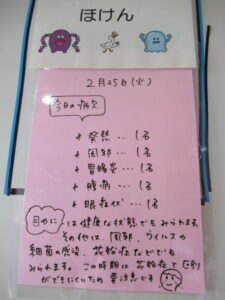 ほけん
2月25日(火)
今日の病欠
発熱…1名
風邪…1名
胃腸炎…1名
腹痛…1名
眼症状…1名
目やには健康な状態でもみられます。
その他は、風邪、ウイルスや
細菌の感染、花粉症などでも
みられます。この時期は花粉症と区別
ができにくいため要注意です